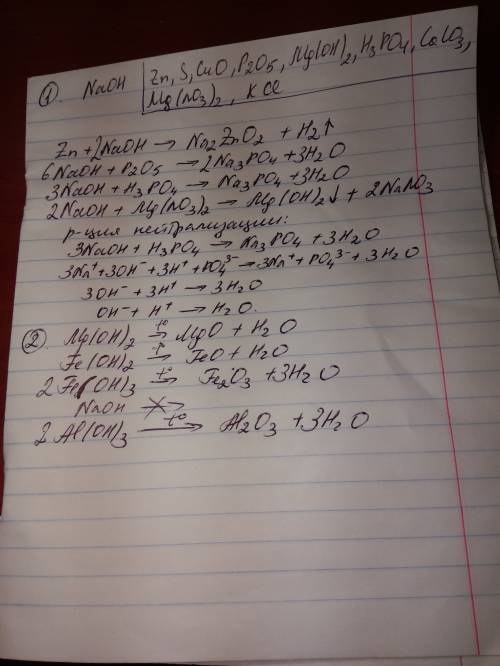 ① NaOH | Zn, S, CuO, P₂O₅, Mg(OH)₂, H₃PO₄, CaCO₃,
Mg(NO₃)₂, KCl
Zn + 2NaOH → Na₂ZnO₂ + H₂↑
6NaOH + P₂O₅ → 2Na₃PO₄ + 3H₂O
3NaOH + H₃PO₄ → Na₃PO₄ + 3H₂O
2NaOH + Mg(NO₃)₂ → Mg(OH)₂↓ + 2NaNO₃
р-ция нейтрализации:
3NaOH + H₃PO₄ → Na₃PO₄ + 3H₂O
3Na⁺ + 3OH⁻ + 3H⁺ + PO₄³⁻ → 3Na⁺ + PO₄³⁻ + 3H₂O
3OH⁻ + 3H⁺ → 3H₂O
OH⁻ + H⁺ → H₂O.
② Mg(OH)₂ →t° MgO + H₂O
Fe(OH)₂ →t° FeO + H₂O
2Fe(OH)₃ →t° Fe₂O₃ + 3H₂O
NaOH ↛
2Al(OH)₃ →t° Al₂O₃ + 3H₂O